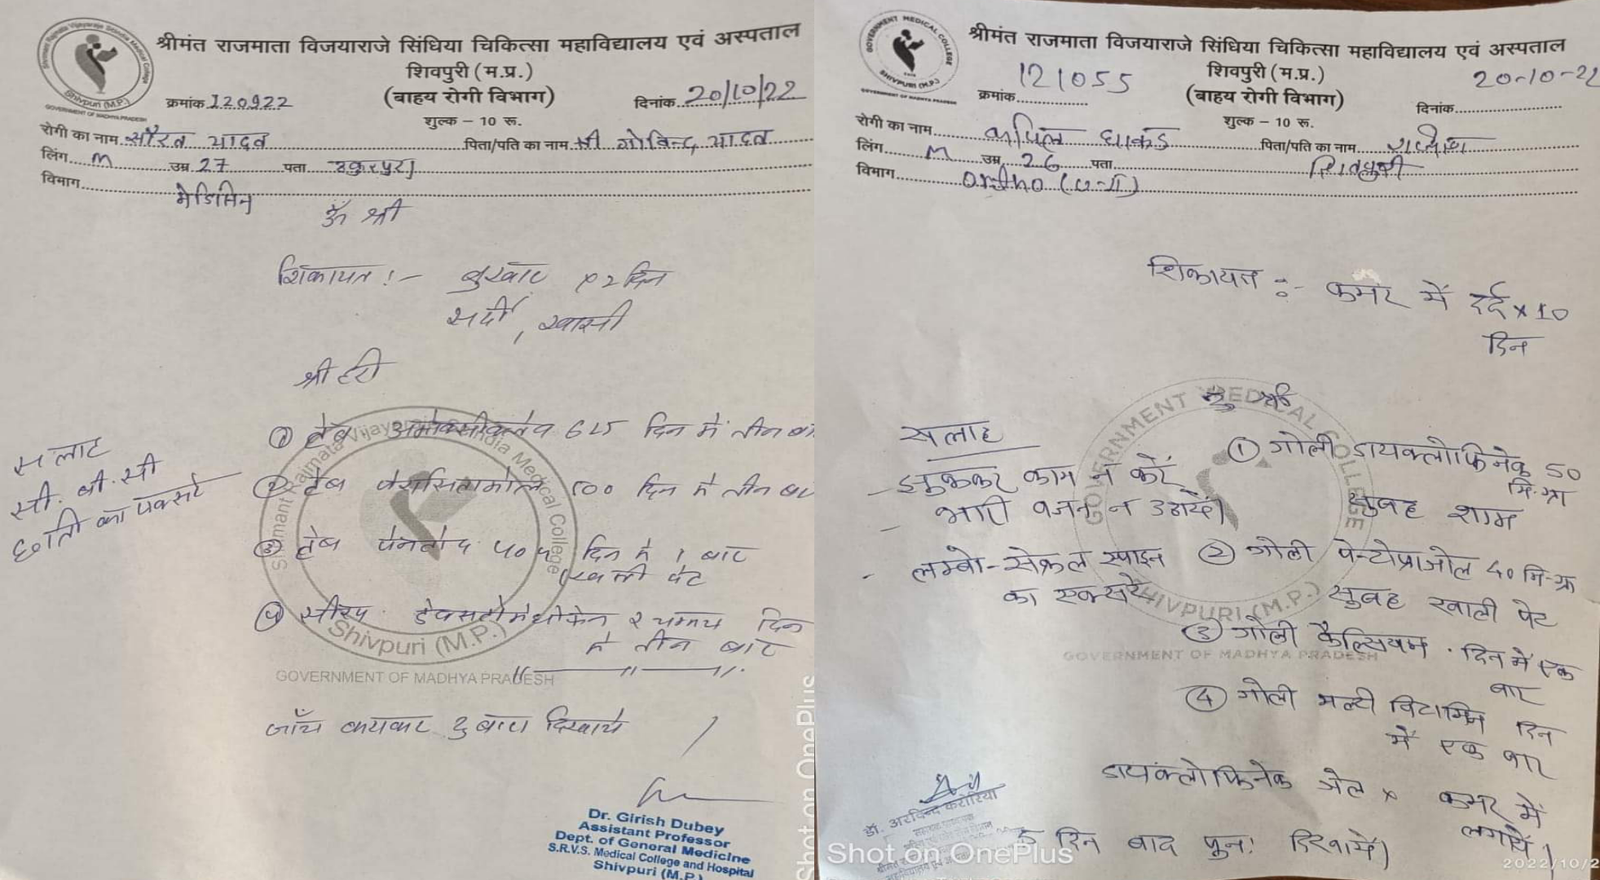 श्रीमंत राजमाता विजयाराजे सिंधिया चिकित्सा महाविद्यालय एवं अस्पताल
शिवपुरी (म.प्र.)
(बाहय रोगी विभाग)
क्रमांक 120922
दिनांक 20/10/22
शुल्क – 10 रू.
रोगी का नाम सौरव यादव पिता/पति का नाम श्री गोविन्द यादव
लिंग M उम्र 27 पता ठकुरपुरा
विभाग मेडिसिन
ॐ श्री
शिकायत :- बुखार x 2 दिन
सर्दी, खासी
श्री हरी
① टेब अमोक्सीक्लेव 625 दिन में तीन बा
② टेब पेरासिटामोल 500 दिन मे तीन बा
③ टेब पेनटोप 40 दिन मे 1 बार
खाली पेट
④ सीरप डेक्सट्रोमेथोर्फेन 2 चम्मच दिन
मे तीन बार
सलाह
सी. बी. सी
छाती का एक्सरे
जाँच कराकर दुबारा दिखाये
Srimant Rajmata Vijayaraje Scindia Medical College
Shivpuri (M.P.)
GOVERNMENT OF MADHYA PRADESH
Dr. Girish Dubey
Assistant Professor
Dept. of General Medicine
S.R.V.S. Medical College and Hospital
Shivpuri (M.P.)
Shot on OnePlus
श्रीमंत राजमाता विजयाराजे सिंधिया चिकित्सा महाविद्यालय एवं अस्पताल
शिवपुरी (म.प्र.)
(बाहय रोगी विभाग)
क्रमांक 121055
दिनांक 20-10-22
शुल्क – 10 रू.
रोगी का नाम कपिल धाकड पिता/पति का नाम
लिंग M उम्र 26 पता शिवपुरी
विभाग ortho
शिकायत :- कमर में दर्द x 10
दिन
सलाह
- झुककर काम न करें
- भारी वजन न उठायें।
- लम्बो-सेक्रल स्पाइन
का एक्सरे
① गोली डायक्लोफिनेक 50
मि.ग्रा
सुबह शाम
② गोली पेन्टोप्राजोल 40 मि-ग्रा
सुबह खाली पेट
③ गोली कैल्सियम . दिन में एक
बार
④ गोली मल्टी विटामिन दिन
में एक बार
डायक्लोफिनेक जेल x कमर में
लगायें।
दिन बाद पुन: दिखायें।
GOVERNMENT MEDICAL COLLEGE
SHIVPURI (M.P.)
GOVERNMENT OF MADHYA PRADESH
डॉ. अरविन्द करोरिया
Shot on OnePlus
2022/10/2